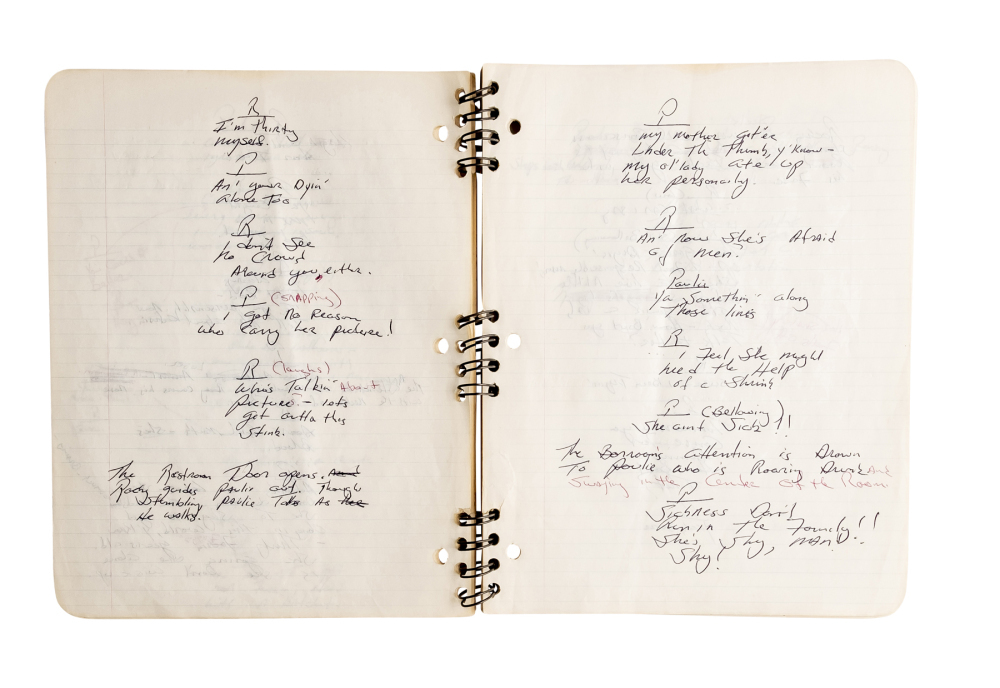 R
I'm thirty
myself.
P
An' your Dyin'
alone Too
R
I don't see
no Crowd
Around you, either.
P (SNAPPING)
I got no Reason
who carry her picture!
R (laughs)
who's Talkin' About
picture - lets
get outta this
stink.
The Restroom Door opens. And
Rocky guides Paulie out. Though
Stumbling Paulie Talks As
He walks.
P
my mother got'er
Under Th Thumb, y'know -
my ol'lady ate up
her personality.
R
An' now she's Afraid
of men?
Paulie
Ya Somethin' along
Those lines
R
I Feel She might
need the Help
of a Shrink
P (Bellowing)
She aint Sick!!
The Barrooms attention is Drawn
To Paulie who is Roaring Drunk And
Swaying in the Center of the Room
P
Sickness Don't
Run in The Family!!
She's Shy, MAN!!
Shy!